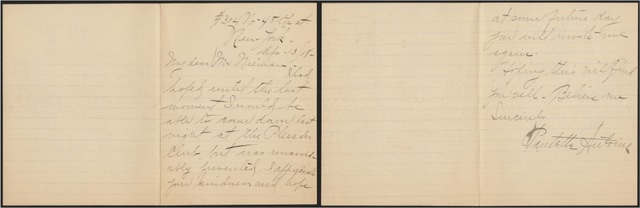 New York
My dear Mr.
I had
hoped until the last
moment I would be
able to come down last
night at the
Club, but was unavoid-
ably prevented. I appreciate
your kindness and hope
at some future day
you will invite me
again.
Hoping this will find
you well - Believe me
Sincerely
Antoine